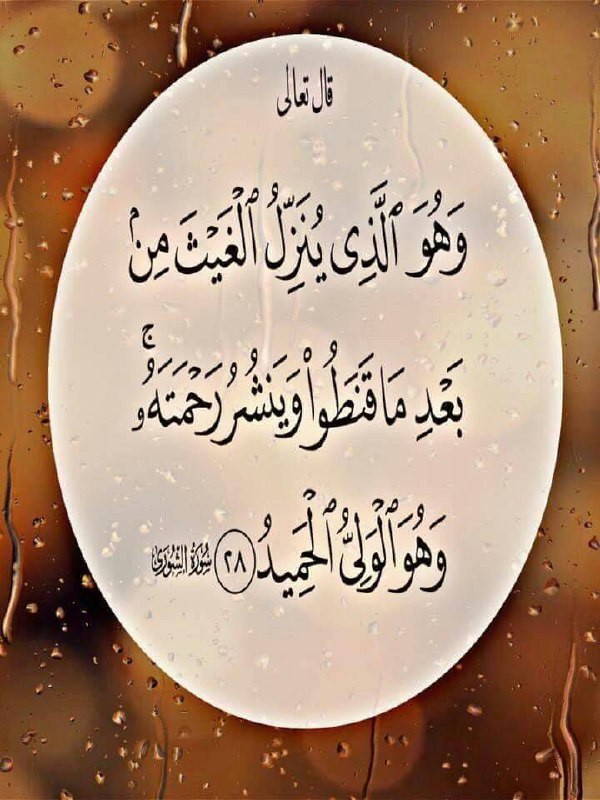 قال تعالى
وَهُوَ ٱلَّذِى يُنَزِّلُ ٱلْغَيْثَ مِنۢ
بَعْدِ مَا قَنَطُوا۟ وَيَنشُرُ رَحْمَتَهُۥ ۚ
وَهُوَ ٱلْوَلِىُّ ٱلْحَمِيدُ ٢٨ سُورَةُ الشُّورَىٰ